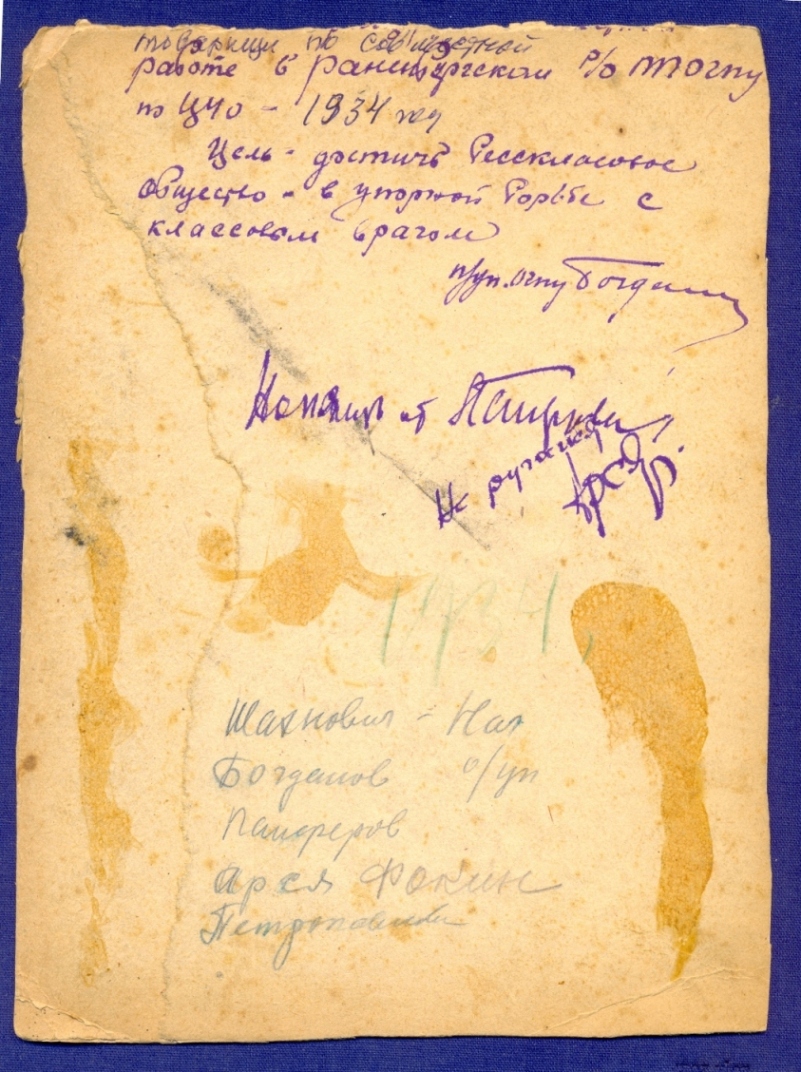 товарищи по совместной
работе в Раненбургском Р/о ПП ОГПУ
по ЦЧО - 1934 год
Цель - достичь бесклассовое
общество - в упорной борьбе с
классовым врагом
п/уп. ОГПУ Богданов
от
Не ругайся
1934.
Шахнович - Нач
Богданов о/уп
Панферов
Арся Фокин